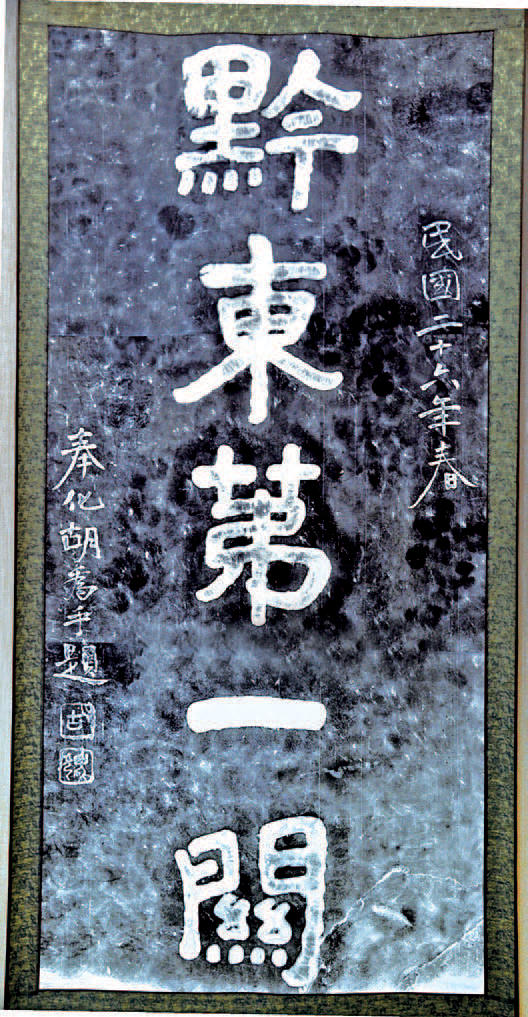 民國二十六年春
黔東第一關
奉化胡手題